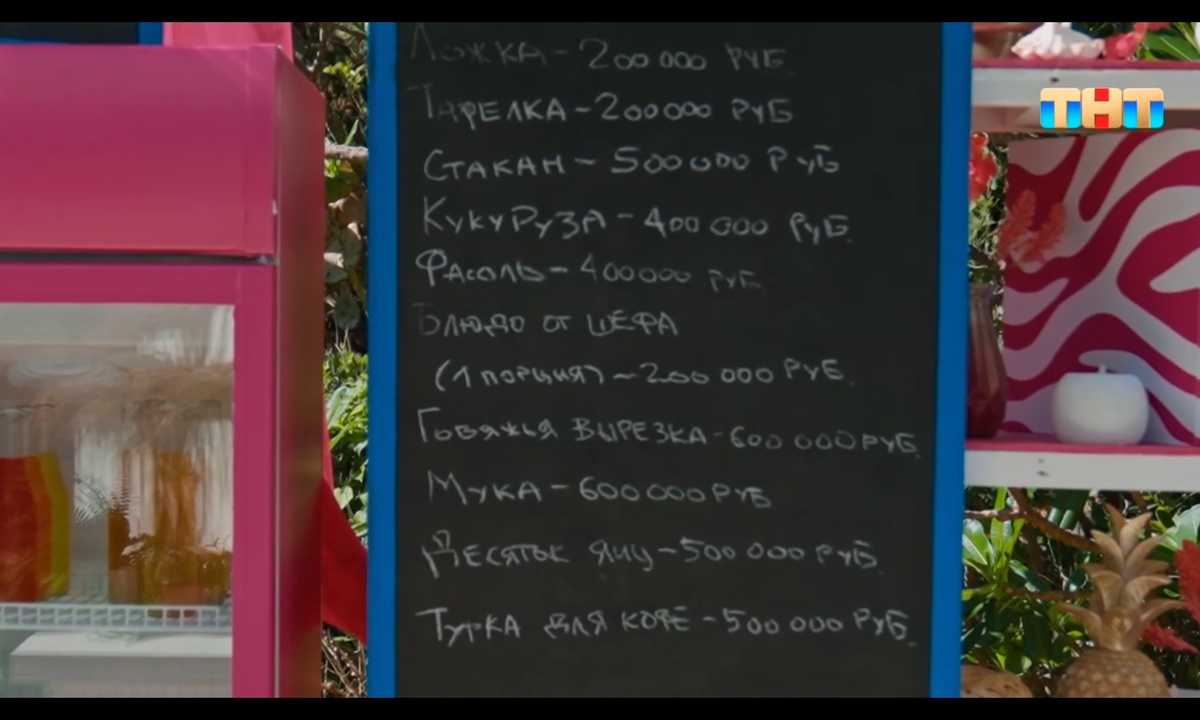 Ложка - 200 000 РУБ
ТНТ
Тарелка - 200000 РУБ
Стакан - 500000 РУБ
Кукуруза - 400 000 РУБ.
Фасоль - 400000 РУБ
Блюдо от шефа
(1 порция) - 200 000 РУБ.
Говяжья вырезка - 600 000 РУБ.
Мука - 600 000 РУБ
Десяток яиц - 500 000 РУБ.
Турка для кофе - 500 000 РУБ.